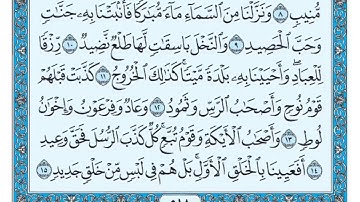 مُّنِيبٍ ٨ وَنَزَّلْنَا مِنَ ٱلسَّمَآءِ مَآءً مُّبَٰرَكًا فَأَنۢبَتْنَا بِهِۦ جَنَّٰتٍ
وَحَبَّ ٱلْحَصِيدِ ٩ وَٱلنَّخْلَ بَاسِقَٰتٍ لَّهَا طَلْعٌ نَّضِيدٌ ١٠ رِّزْقًا
لِّلْعِبَادِ ۖ وَأَحْيَيْنَا بِهِۦ بَلْدَةً مَّيْتًا ۚ كَذَٰلِكَ ٱلْخُرُوجُ ١١ كَذَّبَتْ قَبْلَهُمْ
قَوْمُ نُوحٍ وَأَصْحَٰبُ ٱلرَّسِّ وَثَمُودُ ١٢ وَعَادٌ وَفِرْعَوْنُ وَإِخْوَٰنُ
لُوطٍ ١٣ وَأَصْحَٰبُ ٱلْأَيْكَةِ وَقَوْمُ تُبَّعٍ ۚ كُلٌّ كَذَّبَ ٱلرُّسُلَ فَحَقَّ وَعِيدِ
١٤ أَفَعَيِينَا بِٱلْخَلْقِ ٱلْأَوَّلِ ۚ بَلْ هُمْ فِى لَبْسٍ مِّنْ خَلْقٍ جَدِيدٍ ١٥
٥١٨